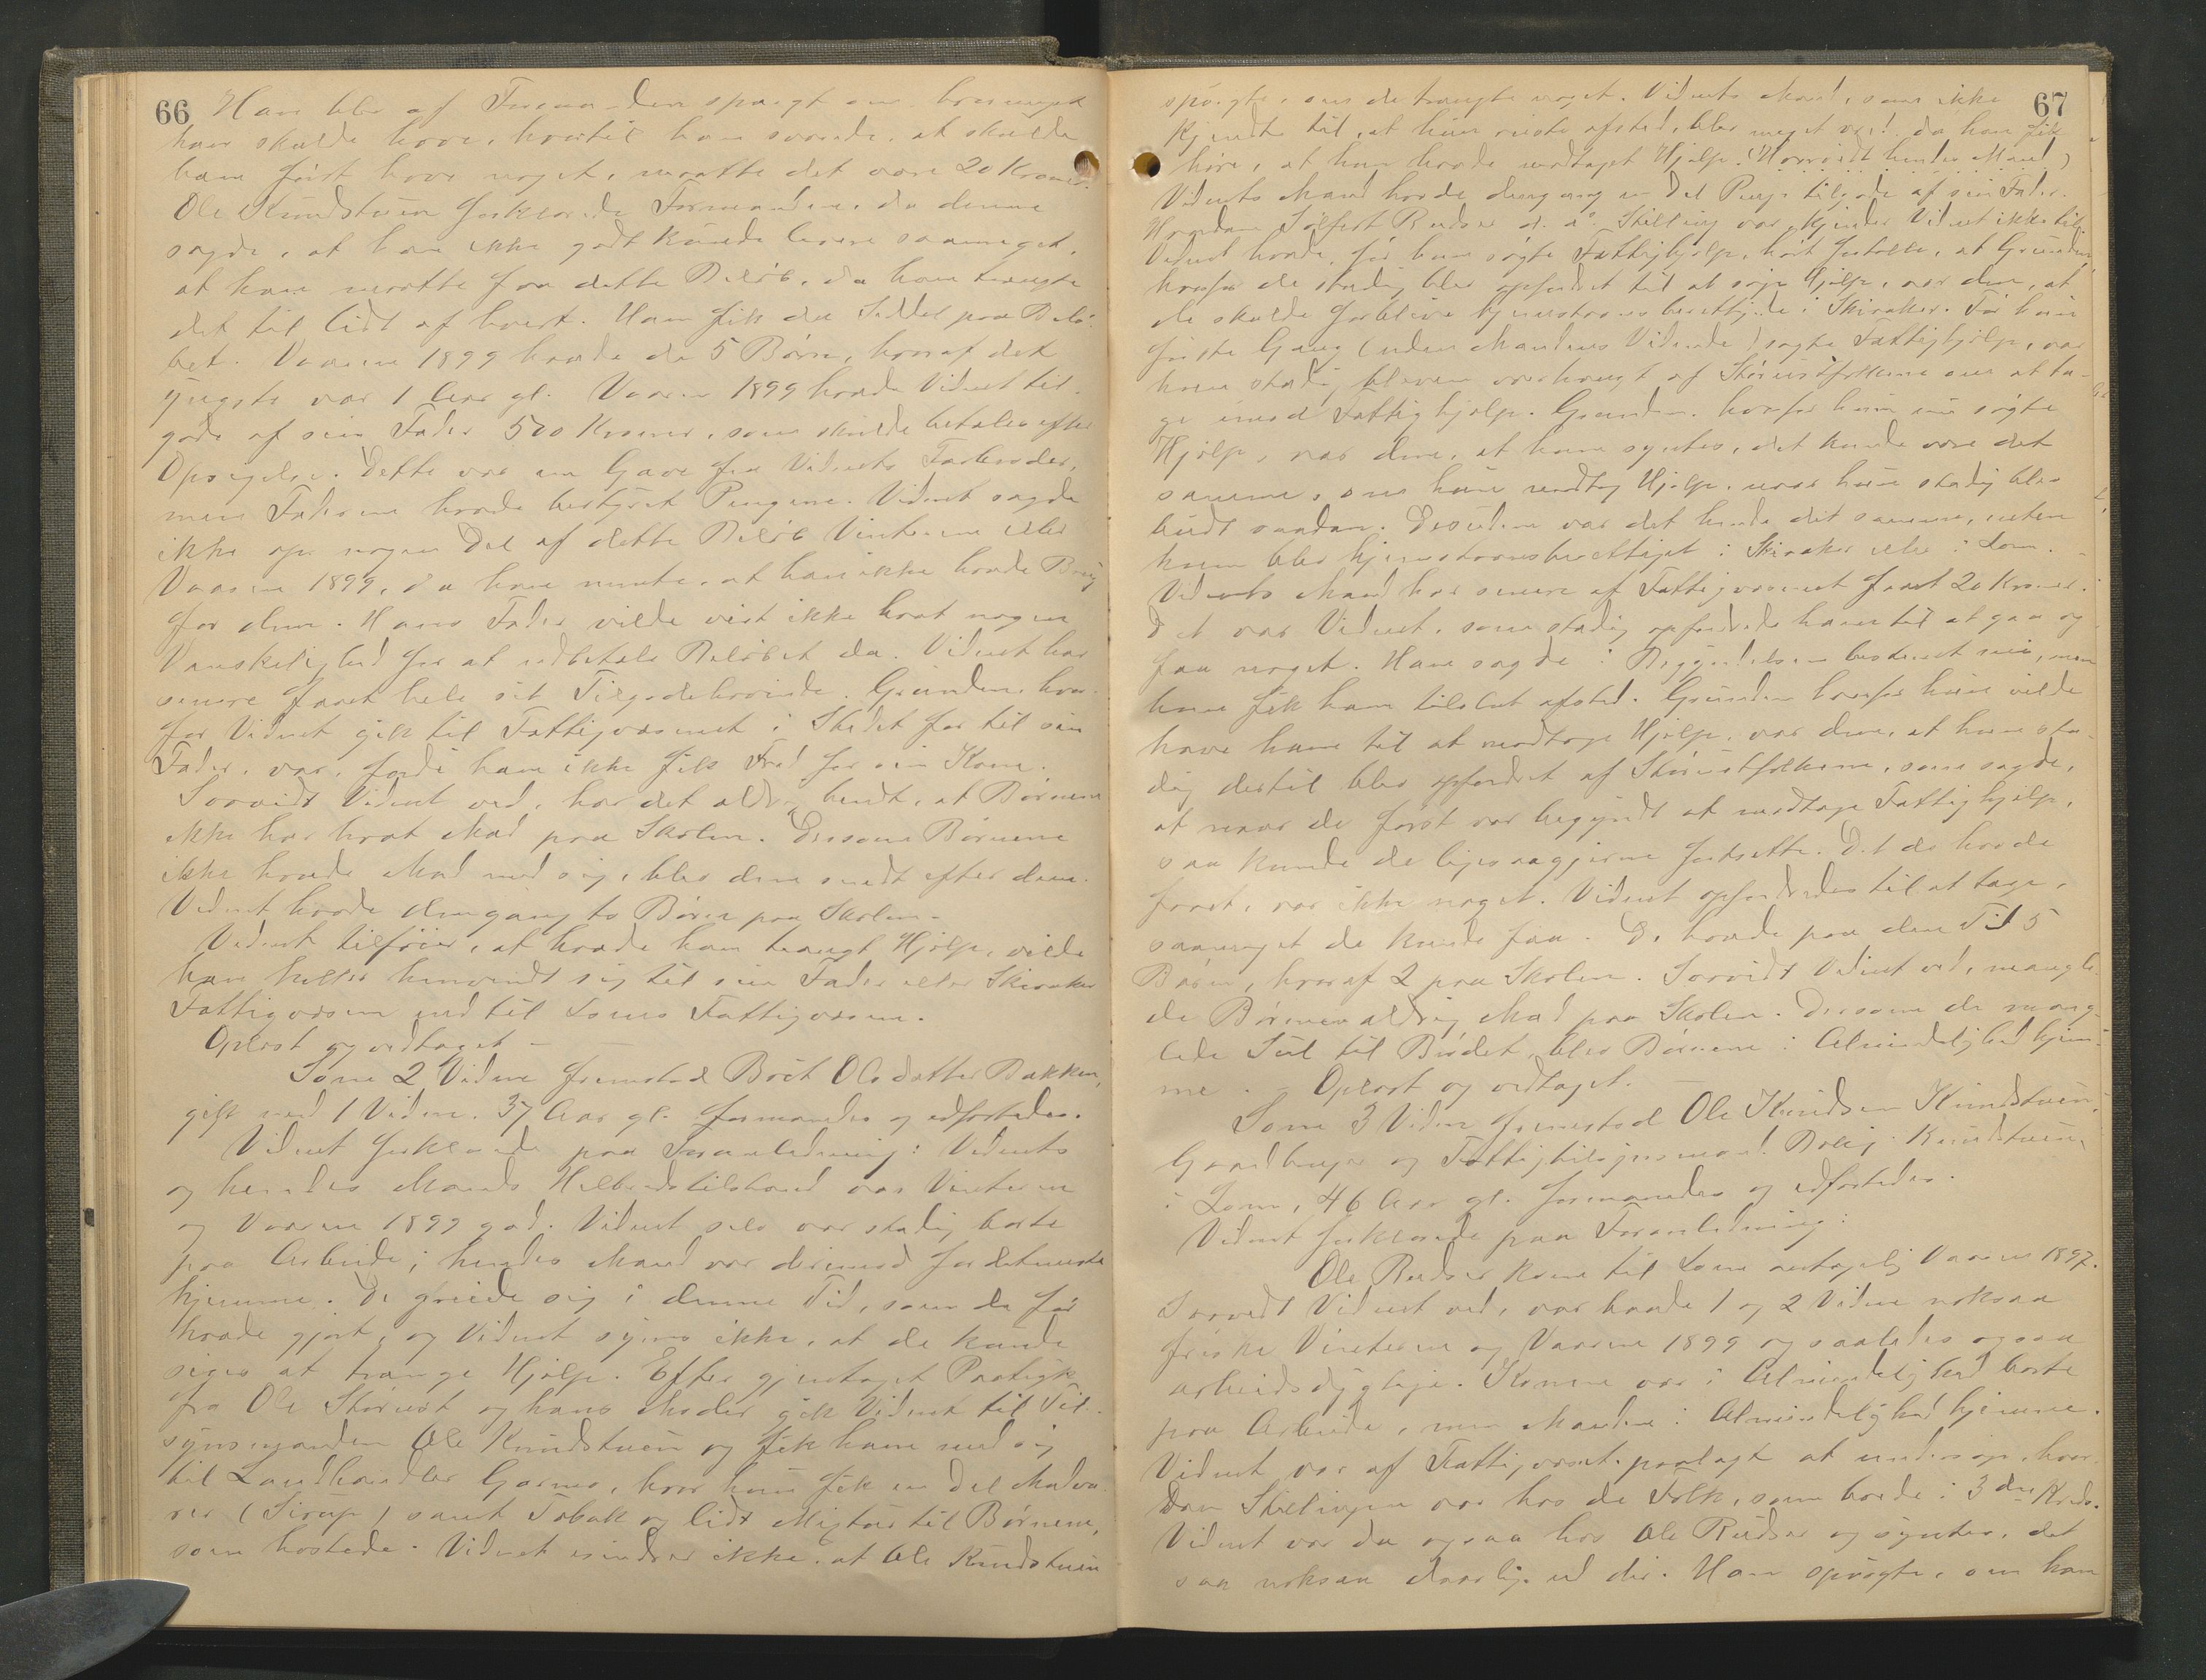 66
Han blev af Formanden spurgt om hvormeget
han skulde have, hvortil han svarede, at skulde
han først have noget, maatte det være 20 Kroner.
Ole Kundstuen forklarede Formanden, da denne
sagde, at han ikke godt kunde levere saameget,
at han maatte faa dette Beløb, da han trængte
det til lidt af hvert. Han fik da Seddel paa Belø-
bet. Vaaren 1899 havde de 5 Børn, hvoraf det
yngste var 1 Aar gl. Vaaren 1899 havde Vidnet til-
gode af sin Fader 500 Kroner, som skulde betales efter
Opsigelse. Dette var en Gave fra Vidnets Farbroder,
men Faderen havde bestyret Pengene. Vidnet sagde
ikke op nogen Del af dette Beløb Vinteren eller
Vaaren 1899, da han mente, at han ikke havde Brug
for dem. Hans Fader vilde vist ikke havt nogen
Vanskelighed for at udbetale Beløbet da. Vidnet har
senere faaet hele sit Tilgodehavende. Grunden hvor-
for Vidnet gik til Fattigvæsenet i Stedet for til sin
Fader, var, fordi han ikke fik Fred for sin Kone.
Saavidt Vidnet ved, har det aldrig hendt, at Børnene
ikke har havt Mad paa Skolen. Dersom Børnene
ikke havde Mad med sig, blev den sendt efter dem.
Vidnet havde dengang to Børn paa Skolen.
Vidnet tilføier, at havde han trængt Hjælp, vilde
han heller henvendt sig til sin Fader eller Skiaker
Fattigvæsen end til Loms Fattigvæsen.
Oplæst og vedtaget –
Som 2 Vidne fremstod Brit Olsdatter Bakken,
gift med 1 Vidne. 37 Aar gl. formanedes og edfæstedes.
Vidnet forklarede paa Foranledning: Vidnets
og hendes Mands Helbredstilstand var Vinteren
og Vaaren 1899 god. Vidnet selv var stadig borte
paa Arbeide; hendes Mand var derimod for det meste
hjemme. De greiede sig i denne Tid, som de før
havde gjort, og Vidnet synes ikke, at de kunde
siges at trænge Hjælp. Efter gjentaget Paatryk
fra Ole Størust og hans Moder gik Vidnet til Til-
synsmanden Ole Kundstuen og fik ham med sig
til Landhandler Garmo, hvor hun fik en Del Madva-
rer (Sirup) samt Tobak og lidt Mixtur til Børnene,
som hostede. Vidnet erindrer ikke, at Ole Kundstuen
67
spurgte, om de trængte noget. Vidnets Mand, som ikke
kjendte til, at hun reiste afsted, blev meget vred, da han fik
høre, at hun havde modtaget Hjælp. (Hørvidt hendes Mand)
Vidnets Mand havde dengang en Del Penge tilgode af sin Fader.
Hvordan Sølfest Rudser d. æ. Stilling var, kjender Vidnet ikke til.
Vidnet havde, før hun søgte Fattighjælp, hørt fortælle, at Grunden,
hvorfor de stadig blev opfordret til at søge Hjælp, var den, at
de skulde forblive hjemstavnsberettigede i Skiaker. Før hun
første Gang (uden Mandens Vidende) søgte Fattighjælp, var
hun stadig bleven overhængt af Størustfolkene om at ta-
ge imod Fattighjælp. Grunden, hvorfor hun nu søgte
Hjælp, var den, at hun syntes, det kunde være det
samme, om hun modtog Hjælp, naar hun stadig blev
budt saadan. Desuden var det hende det samme, enten
hun blev hjemstavnsberettiget i Skiaker eller i Lom.
Vidnets Mand har senere af Fattigvæsenet faaet 20 Kroner.
Det var Vidnet, som stadig opfordrede ham til at gaa og
faa noget. Han sagde i Begyndelsen bestemt nei, men
hun fik ham tilslut afsted. Grunden hvorfor hun vilde
have ham til at modtage Hjælp, var den, at hun sta-
dig dertil blev opfordret af Størustfolkene, som sagde,
at naar de først var begyndt at modtage Fattighjælp,
saa kunde de ligesaagjerne fortsætte. Det de havde
faaet, var ikke noget. Vidnet opfordredes til at tage,
saameget de kunde faa. De havde paa den Tid 5
Børn, hvoraf 2 paa Skolen. Saavidt Vidnet ved, mangle-
de Børnene aldrig Mad paa Skolen. Dersom de mang-
lede Sul til Brødet, blev Børnene i Almindelighed hjem-
me. – Oplæst og vedtaget. –
Som 3 Vidne fremstod Ole Knudsen Kundstuen,
Gaardbruger og Fattigtilsynsmand. Bolig: Kundstuen,
i Lom, 46 Aar gl. formanedes og edfæstedes.
Vidnet forklarede paa Foranledning:
Ole Rudser kom til Lom antagelig Vaaren 1897.
Saavidt Vidnet ved, var baade 1 og 2 Vidne noksaa
friske Vinteren og Vaaren 1899 og saaledes ogsaa
arbeidsdygtige. Konen var i Almindelighed borte
paa Arbeide, men Manden i Almindelighed hjemme.
Vidnet var af Fattigvæsenet paalagt at undersøge, hvor-
dan Stillingen var hos de Folk, som boede i 3die Kreds.
Vidnet var da ogsaa hos Ole Rudser og syntes, det
saa noksaa daarlig ud der. Han spurgte, om han